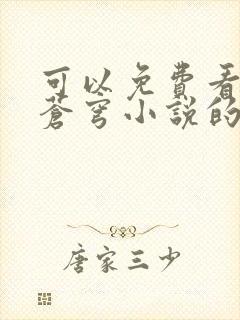 可以免費看
蒼穹小說的
唐家三少